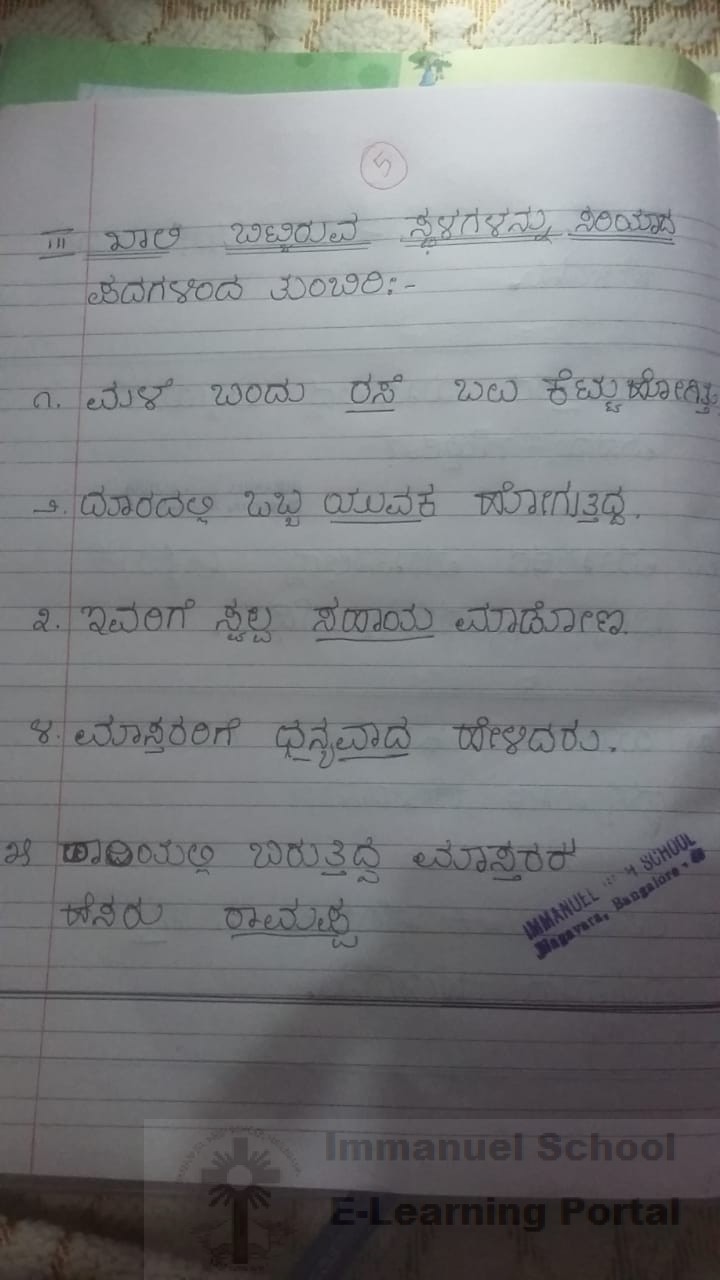 5
III ಖಾಲಿ ಬಿಟ್ಟಿರುವ ಸ್ಥಳಗಳನ್ನು ಸರಿಯಾದ
ಪದಗಳಿಂದ ತುಂಬಿರಿ:-
೧. ಮಳೆ ಬಂದು ರಸೆ ಬಲು ಕೆಟ್ಟುಹೋಗಿತ್ತು
೨. ದೂರದಲ್ಲಿ ಒಬ್ಬ ಯುವಕ ಹೋಗುತ್ತಿದ್ದ.
೩. ಇವರಿಗೆ ಸ್ವಲ್ಪ ಸಹಾಯ ಮಾಡೋಣ.
೪. ಮಾಸ್ತರರಿಗೆ ಧನ್ಯವಾದ ಹೇಳಿದರು.
೫ ಹಾದಿಯಲ್ಲಿ ಬರುತ್ತಿದ್ದ ಮಾಸ್ತರರ
ಹೆಸರು ರಾಮಪ್ಪ
IMMANUEL SCHOOL
Nagavara, Bangalore
Immanuel School
E-Learning Portal